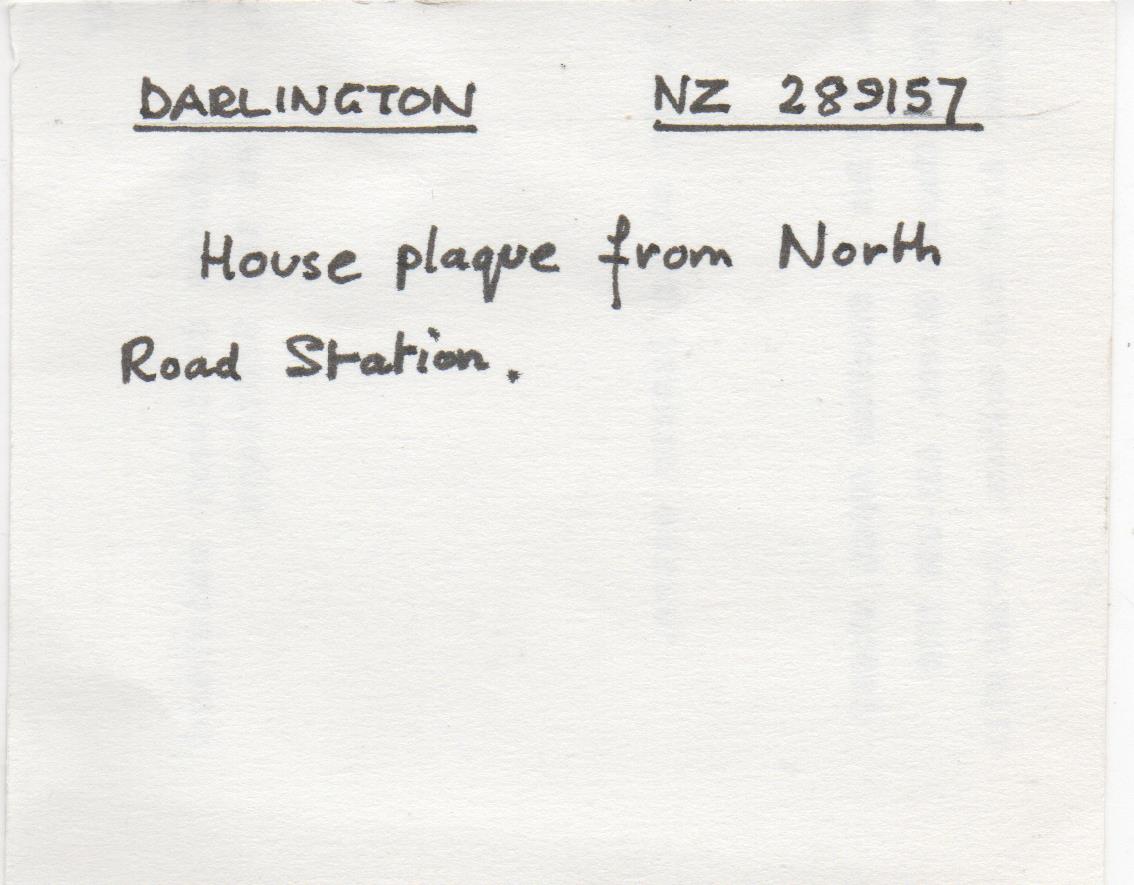 DARLINGTON NZ 289157
House plaque from North
Road Station.